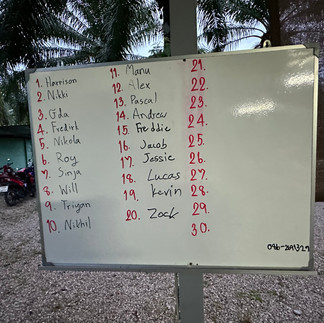 1. Harrison
2. Nikki
3. Gda
4. Fredirk
5. Nikola
6. Roy
7. Sinja
8. Will
9. Triyan
10. Nikhil
11. Manu
12. Alex
13. Pascal
14. Andrew
15. Freddie
16. Jacob
17. Jessie
18. Lucas
19. Kevin
20. Zack
21.
22.
23.
24.
25.
26.
27.
28.
29.
30.